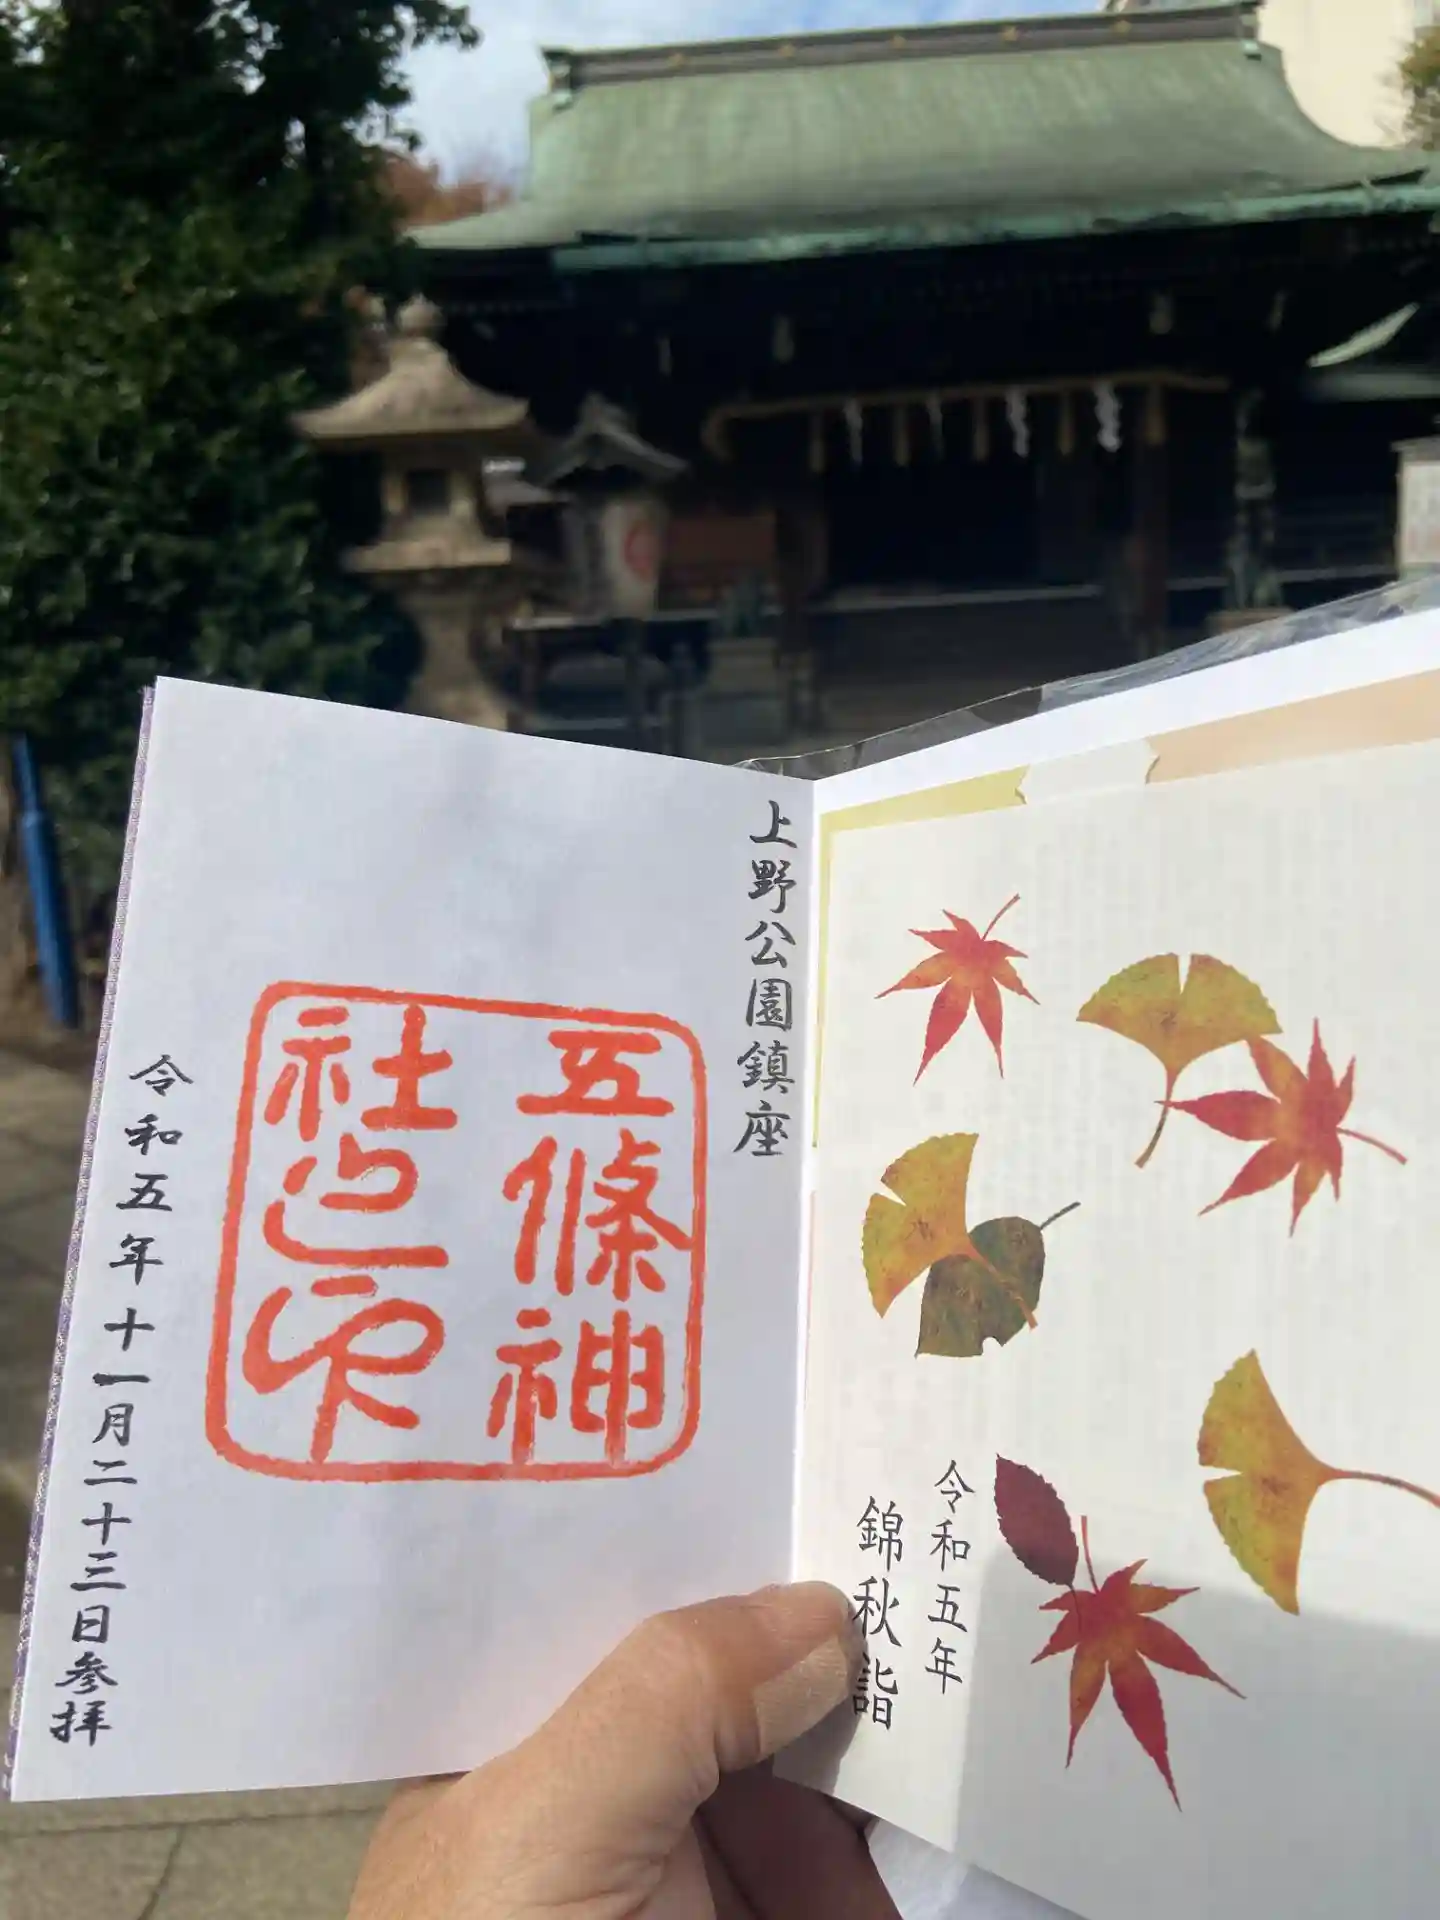 令和五年
錦秋詣
上野公園鎮座
五條神
社之印
令和五年十一月二十三日参拝